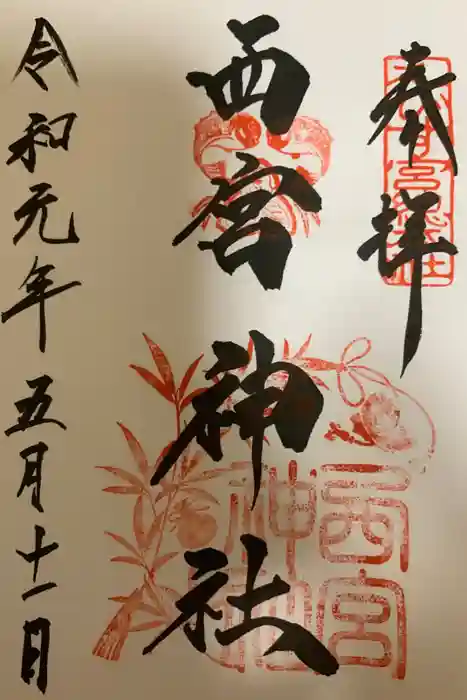 奉拝
西宮神社
令和元年五月十一日
西宮
神社